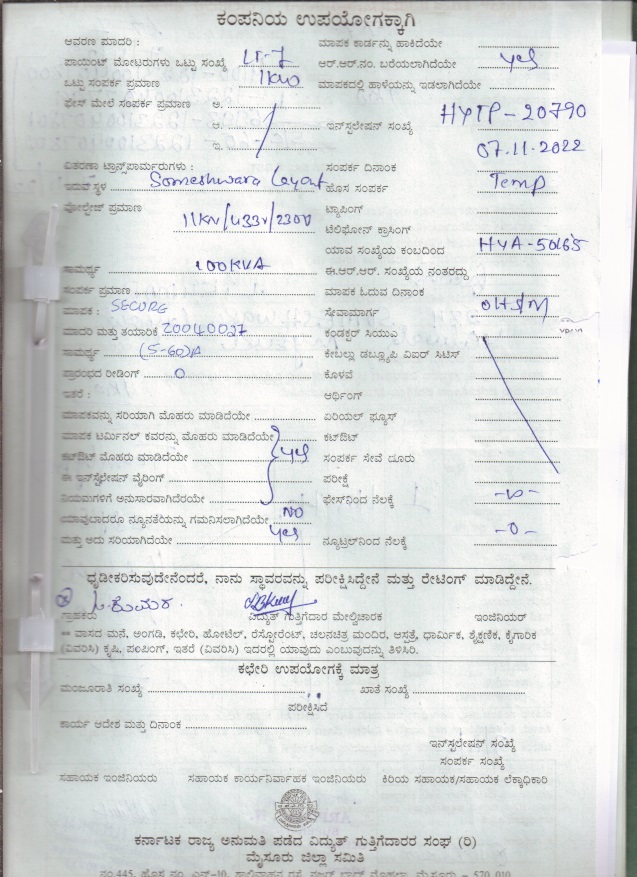 ಕಂಪನಿಯ ಉಪಯೋಗಕ್ಕಾಗಿ
ಆವರಣ ಮಾದರಿ :
ಮಾಪಕ ಕಾರ್ಡನ್ನು ಹಾಕಿದೆಯೇ
ಪಾಯಿಂಟ್ ಮೋಟರುಗಳು ಒಟ್ಟು ಸಂಖ್ಯೆ LT-7
ಆರ್.ಆರ್.ನಂ. ಬರೆಯಲಾಗಿದೆಯೇ Yes
ಒಟ್ಟು ಸಂಪರ್ಕ ಪ್ರಮಾಣ 1KW
ಮಾಪಕದಲ್ಲಿ ಹಾಳೆಯನ್ನು ಇಡಲಾಗಿದೆಯೇ
ಫೇಸ್ ಮೇಲೆ ಸಂಪರ್ಕ ಪ್ರಮಾಣ ಅ.
ಆ.
ಇನ್‌ಸ್ಟಲೇಷನ್ ಸಂಖ್ಯೆ HYTP-20790
ಇ.
07.11.2022
ವಿತರಣಾ ಟ್ರಾನ್ಸ್‌ಫಾರ್ಮರುಗಳು :
ಸಂಪರ್ಕ ದಿನಾಂಕ
ಇರುವ ಸ್ಥಳ Someshwara Layout
ಹೊಸ ಸಂಪರ್ಕ Temp
ವೋಲ್ಟೇಜ್ ಪ್ರಮಾಣ 11KV/433V/230V
ಟ್ಯಾಪಿಂಗ್
ಟೆಲಿಫೋನ್ ಕ್ರಾಸಿಂಗ್
ಯಾವ ಸಂಖ್ಯೆಯ ಕಂಬದಿಂದ HYA-50165
ಸಾಮರ್ಥ್ಯ 100KVA
ಈ.ಆರ್.ಆರ್. ಸಂಖ್ಯೆಯ ನಂತರದ್ದು
ಸಂಪರ್ಕ ಪ್ರಮಾಣ
ಮಾಪಕ ಓದುವ ದಿನಾಂಕ
ಮಾಪಕ : SECURE
ಸೇವಾಮಾರ್ಗ OHSM
ಮಾದರಿ ಮತ್ತು ತಯಾರಿಕೆ 20040027
ಕಂಡಕ್ಟರ್ ಸಿಯುಎ
ಸಾಮರ್ಥ್ಯ (5-60)A
ಕೇಬಲ್ಲು ಡಬ್ಲ್ಯೂಪಿ ಎಐರ್ ಸಿಟಿಸ್
ಪ್ರಾರಂಭದ ರೀಡಿಂಗ್ 0
ಕೊಳವೆ
ಇತರೆ :
ಆರ್ಥಿಂಗ್
ಮಾಪಕವನ್ನು ಸರಿಯಾಗಿ ಮೊಹರು ಮಾಡಿದೆಯೇ
ಏರಿಯಲ್ ಫ್ಯೂಸ್
ಮಾಪಕ ಟರ್ಮಿನಲ್ ಕವರನ್ನು ಮೊಹರು ಮಾಡಿದೆಯೇ
ಕಟ್‌ಔಟ್
ಕಟ್‌ಔಟ್ ಮೊಹರು ಮಾಡಿದೆಯೇ Yes
ಸಂಪರ್ಕ ಸೇವೆ ದೂರು
ಈ ಇನ್‌ಸ್ಟಲೇಷನ್ ವೈರಿಂಗ್
ಪರೀಕ್ಷೆ
ನಿಯಮಗಳಿಗೆ ಅನುಸಾರವಾಗಿದೆರೆಯೇ
ಫೇಸ್‌ನಿಂದ ನೆಲಕ್ಕೆ -0-
ಯಾವುದಾದರೂ ನ್ಯೂನತೆಯನ್ನು ಗಮನಿಸಲಾಗಿದೆಯೇ NO
ಮತ್ತು ಅದು ಸರಿಯಾಗಿದೆಯೇ Yes
ನ್ಯೂಟ್ರಲ್‌ನಿಂದ ನೆಲಕ್ಕೆ -0-
ಧೃಡೀಕರಿಸುವುದೇನೆಂದರೆ, ನಾನು ಸ್ಥಾವರವನ್ನು ಪರೀಕ್ಷಿಸಿದ್ದೇನೆ ಮತ್ತು ರೇಟಿಂಗ್ ಮಾಡಿದ್ದೇನೆ.
ಗ್ರಾಹಕರು ವಿದ್ಯುತ್ ಗುತ್ತಿಗೆದಾರ ಮೇಲ್ವಿಚಾರಕ ಇಂಜಿನಿಯರ್
** ವಾಸದ ಮನೆ, ಅಂಗಡಿ, ಕಛೇರಿ, ಹೋಟೆಲ್, ರೆಸ್ಟೋರೆಂಟ್, ಚಲನಚಿತ್ರ ಮಂದಿರ, ಆಸ್ಪತ್ರೆ, ಧಾರ್ಮಿಕ, ಶೈಕ್ಷಣಿಕ, ಕೈಗಾರಿಕ
(ವಿವರಿಸಿ) ಕೃಷಿ, ಪಂಪಿಂಗ್, ಇತರೆ (ವಿವರಿಸಿ) ಇದರಲ್ಲಿ ಯಾವುದು ಎಂಬುವುದನ್ನು ತಿಳಿಸಿರಿ.
ಕಛೇರಿ ಉಪಯೋಗಕ್ಕೆ ಮಾತ್ರ
ಮಂಜೂರಾತಿ ಸಂಖ್ಯೆ ಖಾತೆ ಸಂಖ್ಯೆ
ಪರೀಕ್ಷಿಸಿದೆ
ಕಾರ್ಯ ಆದೇಶ ಮತ್ತು ದಿನಾಂಕ
ಇನ್‌ಸ್ಟಲೇಷನ್ ಸಂಖ್ಯೆ
ಸಂಪರ್ಕ ಸಂಖ್ಯೆ
ಸಹಾಯಕ ಇಂಜಿನಿಯರು ಸಹಾಯಕ ಕಾರ್ಯನಿರ್ವಾಹಕ ಇಂಜಿನಿಯರು ಕಿರಿಯ ಸಹಾಯಕ/ಸಹಾಯಕ ಲೆಕ್ಕಾಧಿಕಾರಿ
ಕರ್ನಾಟಕ ರಾಜ್ಯ ಅನುಮತಿ ಪಡೆದ ವಿದ್ಯುತ್ ಗುತ್ತಿಗೆದಾರರ ಸಂಘ (ರಿ)
ಮೈಸೂರು ಜಿಲ್ಲಾ ಸಮಿತಿ